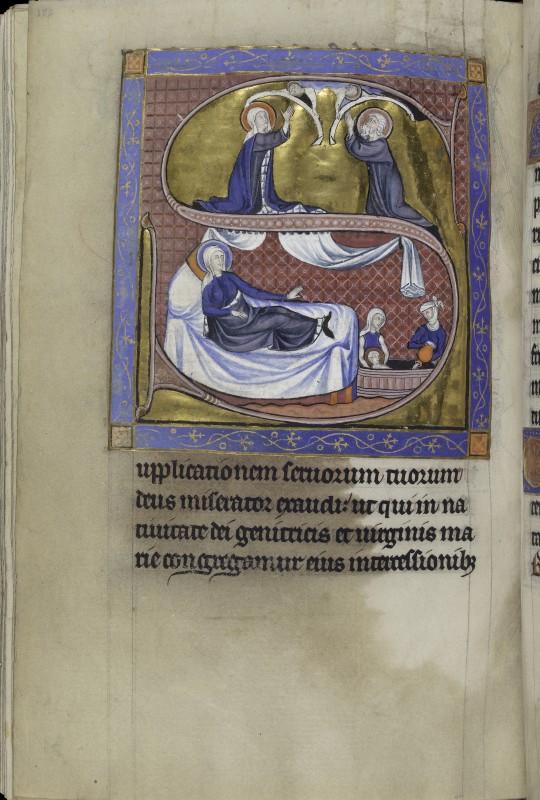 S
upplicationem seruorum tuorum
deus miserator exaudi: ut qui in na
tiuitate dei genitricis et uirginis ma
rie congregamur eius intercessionib;